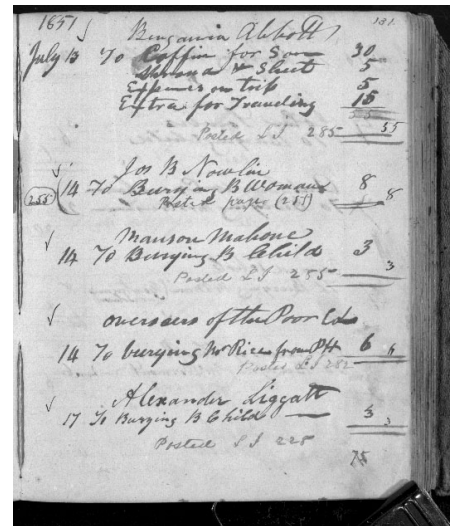 1851 Benjamin Abbott 131
July 13 To Coffin for Son 30
Shroud & Sheet 5
Expenses on trip 5
Extra for Traveling 15
55 55
Posted LJ 285
Jos B Nowlin
(255) 14 To Burying B Womans 8 8
Posted page (251)
Manson Mahone
14 To Burying B Child 3 3
Posted LJ 255
overseers of the Poor
14 To burying Mr Rice from PH 6 6
Posted LJ 282
Alexander Liggatt
17 To Burying B Child 3 3
Posted LJ 225
75